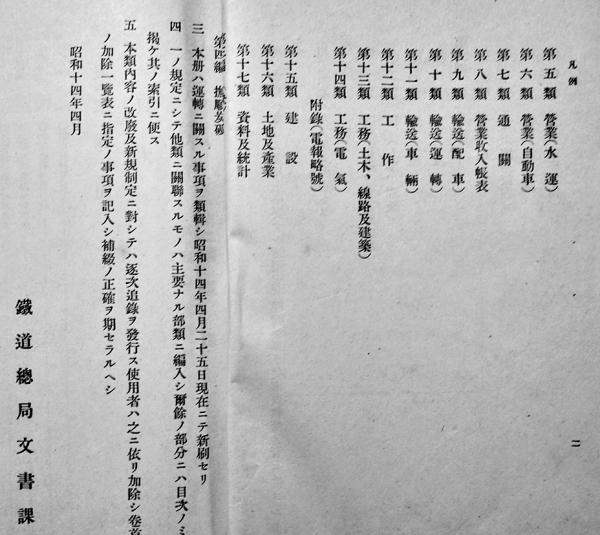 凡例
二
第五類 營業(水運)
第六類 營業(自動車)
第七類 通關
第八類 營業收入帳表
第九類 輸送(配車)
第十類 輸送(運轉)
第十一類 輸送(車輛)
第十二類 工作
第十三類 工務(土木、線路及建築)
第十四類 工務(電氣)
附錄(電報略號)
第十五類 建設
第十六類 土地及產業
第十七類 資料及統計
第四編 撫順炭礦
三 本册ハ運轉ニ關スル事項ヲ類輯シ昭和十四年四月二十五日現在ニテ新刷セリ
四 一ノ規定ニシテ他類ニ關聯スルモノハ主要ナル部類ニ編入シ爾餘ノ部分ニハ目次ノミ
揭ケ其ノ索引ニ便ス
五 本類內容ノ改廢及新規制定ニ對シテハ逐次追錄ヲ發行ス使用者ハ之ニ依リ加除シ卷首
ノ加除一覽表ニ指定ノ事項ヲ記入シ補綴ノ正確ヲ期セラルヘシ
昭和十四年四月
鐵道總局文書課